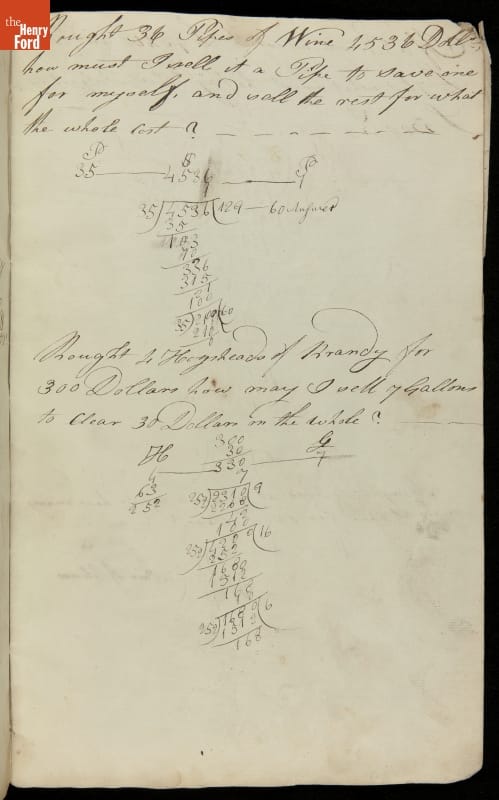 the
Henry
Ford
Bought 36 Pipes of Wine 4536 Doll
how must I sell it a Pipe to save one
for myself, and sell the rest for what
the whole cost ?
P $ P
35 4536 1
1
35)4536(129 60 Answer
35
103
70
336
315
21
100
35)2100(60
210
Bought 4 Hogsheads of Brandy for
300 Dollars how may I sell 7 Gallons
to Clear 30 Dollars on the whole ?
300
H 30 G
4 330 7
63 7
252 252)2310(9
2268
42
100
252)4200(16
252
1680
1512
168
252)1680(6
1512
168